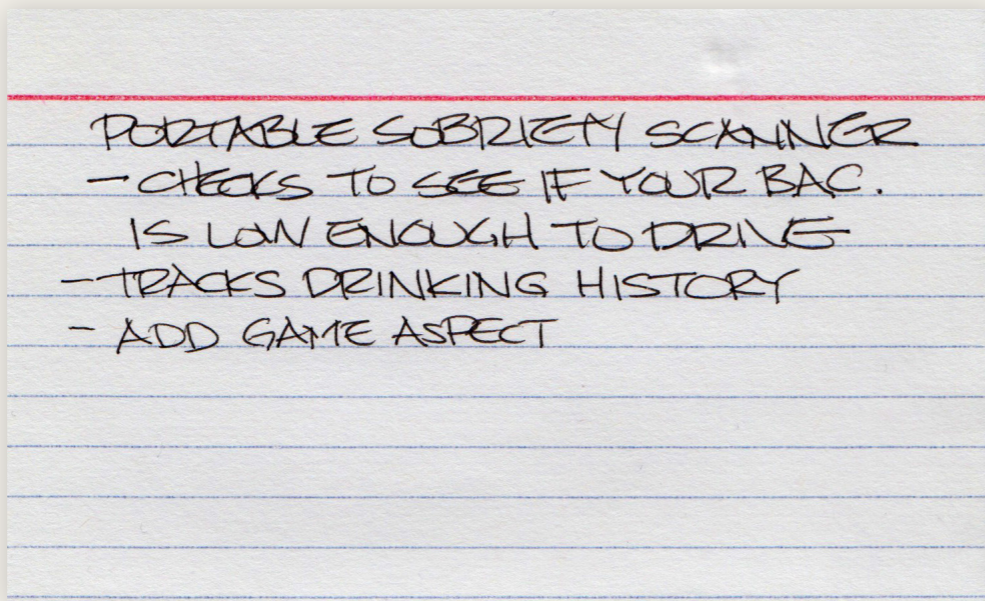 PORTABLE SOBRIETY SCANNER
- CHECKS TO SEE IF YOUR BAC.
IS LOW ENOUGH TO DRIVE
- TRACKS DRINKING HISTORY
- ADD GAME ASPECT